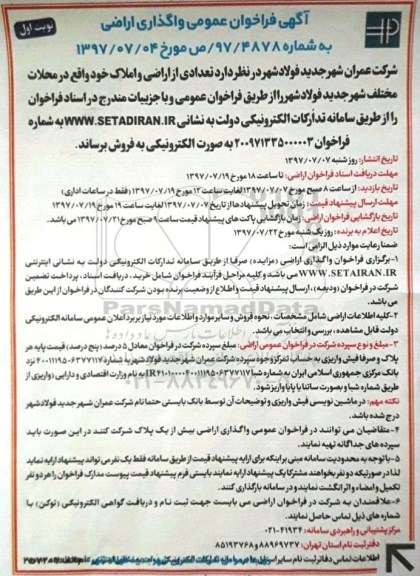 آگهی فراخوان عمومی واگذاری اراضی
نوبت اول
به شماره ۹۷/۴۸۷۸/ص مورخ ۱۳۹۷/۰۷/۰۴
شرکت عمران شهر جدید فولادشهر در نظر دارد تعدادی از اراضی و املاک خود واقع در محلات
مختلف شهر جدید فولادشهر را از طریق فراخوان عمومی و با جزییات مندرج در اسناد فراخوان
را از طریق سامانه تدارکات الکترونیکی دولت به نشانی WWW.SETADIRAN.IR به شماره
فراخوان ۲۰۰۹۷۱۳۳۵۰۰۰۰۰۳ به صورت الکترونیکی به فروش برساند.
تاریخ انتشار: روز شنبه ۱۳۹۷/۰۷/۰۷
مهلت دریافت اسناد فراخوان اراضی: تا ساعت ۱۸ مورخ ۱۳۹۷/۰۷/۱۹
تاریخ بازدید: از ساعت ۸ صبح مورخ ۱۳۹۷/۰۷/۰۷ لغایت ساعت ۱۲ مورخ ۱۳۹۷/۰۷/۱۹ (فقط در ساعات اداری)
مهلت ارسال پیشنهاد قیمت: زمان تحویل پیشنهادها از تاریخ ۱۳۹۷/۰۷/۰۷ لغایت ساعت ۱۹ مورخ ۱۳۹۷/۰۷/۱۹
تاریخ بازگشایی فراخوان اراضی: زمان بازگشایی پاکت های پیشنهاد قیمت ساعت ۹ صبح مورخ ۱۳۹۷/۰۷/۲۱ می باشد.
تاریخ اعلام به برنده: روز یک شنبه مورخ ۱۳۹۷/۰۷/۲۲
ضمنا رعایت موارد ذیل الزامی است:
۱-برگزاری فراخوان واگذاری اراضی (مزایده) صرفا از طریق سامانه تدارکات الکترونیکی دولت به نشانی اینترنتی
WWW.SETAIRAN.IR می باشد و کلیه مراحل فرآیند فراخوان شامل خرید، دریافت اسناد، پرداخت تضمین
شرکت در فراخوان (ودیعه)، ارسال پیشنهاد قیمت و اطلاع از وضعیت برنده بودن شرکت کنندگان در فراخوان از این طریق
می باشد.
۲-کلیه اطلاعات اراضی شامل مشخصات، نحوه فروش و سایر موارد و اطلاعات مورد نیاز در برد اعلان عمومی سامانه الکترونیکی
دولت قابل مشاهده، بررسی و انتخاب می باشد.
۳-مبلغ و نوع سپرده شرکت در فراخوان عمومی اراضی: مبلغ سپرده شرکت در فراخوان معادل ۵ درصد (پنج درصد) قیمت پایه هر
پلاک و صرفا فیش واریزی به حساب تمرکز وجوه سپرده شرکت عمران شهر جدید فولادشهر به شماره ۴۰۰۱۱۱۹۵۰۶۳۷۷۱۱۷ نزد
بانک مرکزی جمهوری اسلامی ایران به شماره شبا
طریق شماره شبا و بصورت ساتنا یا پایا واریز شود.
نکته مهم: در ماشین نویسی فیش واریزی و توضیحات آن توسط بانک بایستی حتما نام شرکت عمران شهر جدید فولادشهر
درج شده باشد.
۴-متقاضیان می توانند در فراخوان عمومی واگذاری اراضی بیش از یک پلاک شرکت کنند در این صورت باید
سپرده های جداگانه تهیه نمایند.
۵-با توجه به محدودیت سامانه مبنی بر اینکه برای ارایه پیشنهاد قیمت از طریق سامانه فقط یک نفر می تواند پیشنهاد ارایه نماید
لذا در صورتیکه دو نفر بخواهند مشترکا یک پیشنهاد ارایه نمایند بایستی فرم پیشنهاد قیمت پیوست مدارک فراخوان را هر دو نفر
تکمیل و امضاء و اثر انگشت نمایند و در سامانه بارگذاری کنند.
۶-علاقمندان به شرکت در فراخوان اراضی می بایست جهت ثبت نام و دریافت گواهی الکترونیکی (توکن) با
شماره های ذیل تماس حاصل نمایند.
مرکز پشتیبانی و راهبردی سامانه: ۴۱۹۳۴-۰۲۱
دفتر ثبت نام استان تهران: ۸۸۹۶۹۷۳۷ و ۸۵۱۹۳۷۶۸